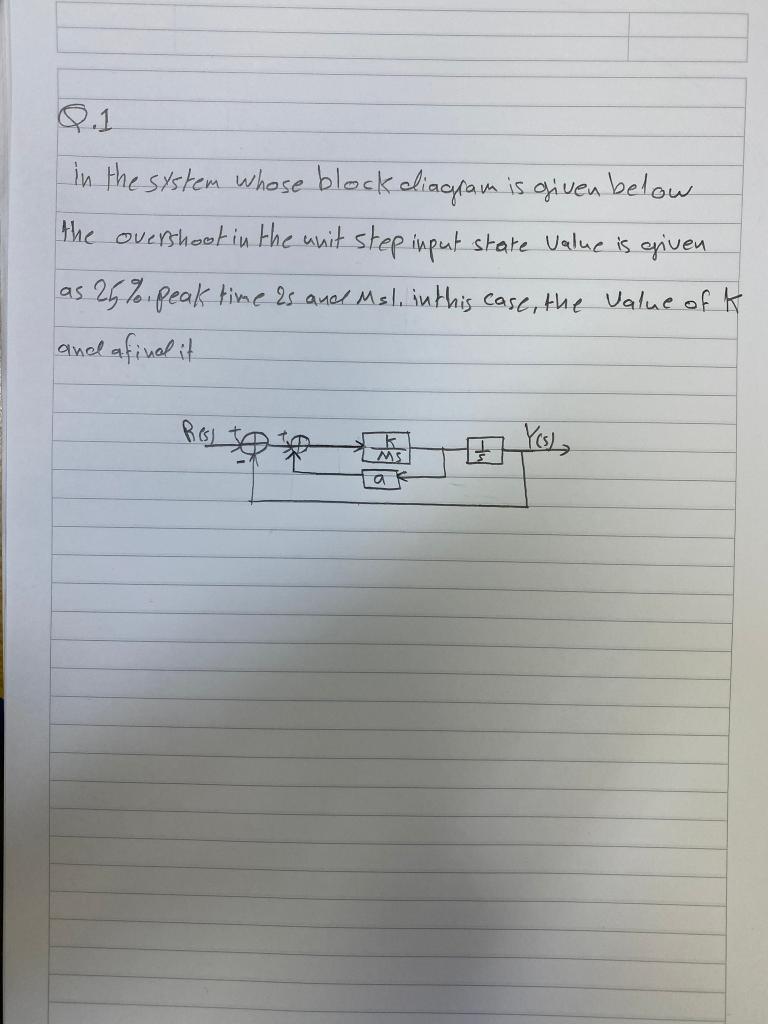 Q.1
in the system whose block diagram is given below
the overshoot in the unit step input state value is given
as 25%. peak time 2s and Msl. in this case, the value of K
and a find it
R(s) + + K 1 Y(s)
- Ms s
a